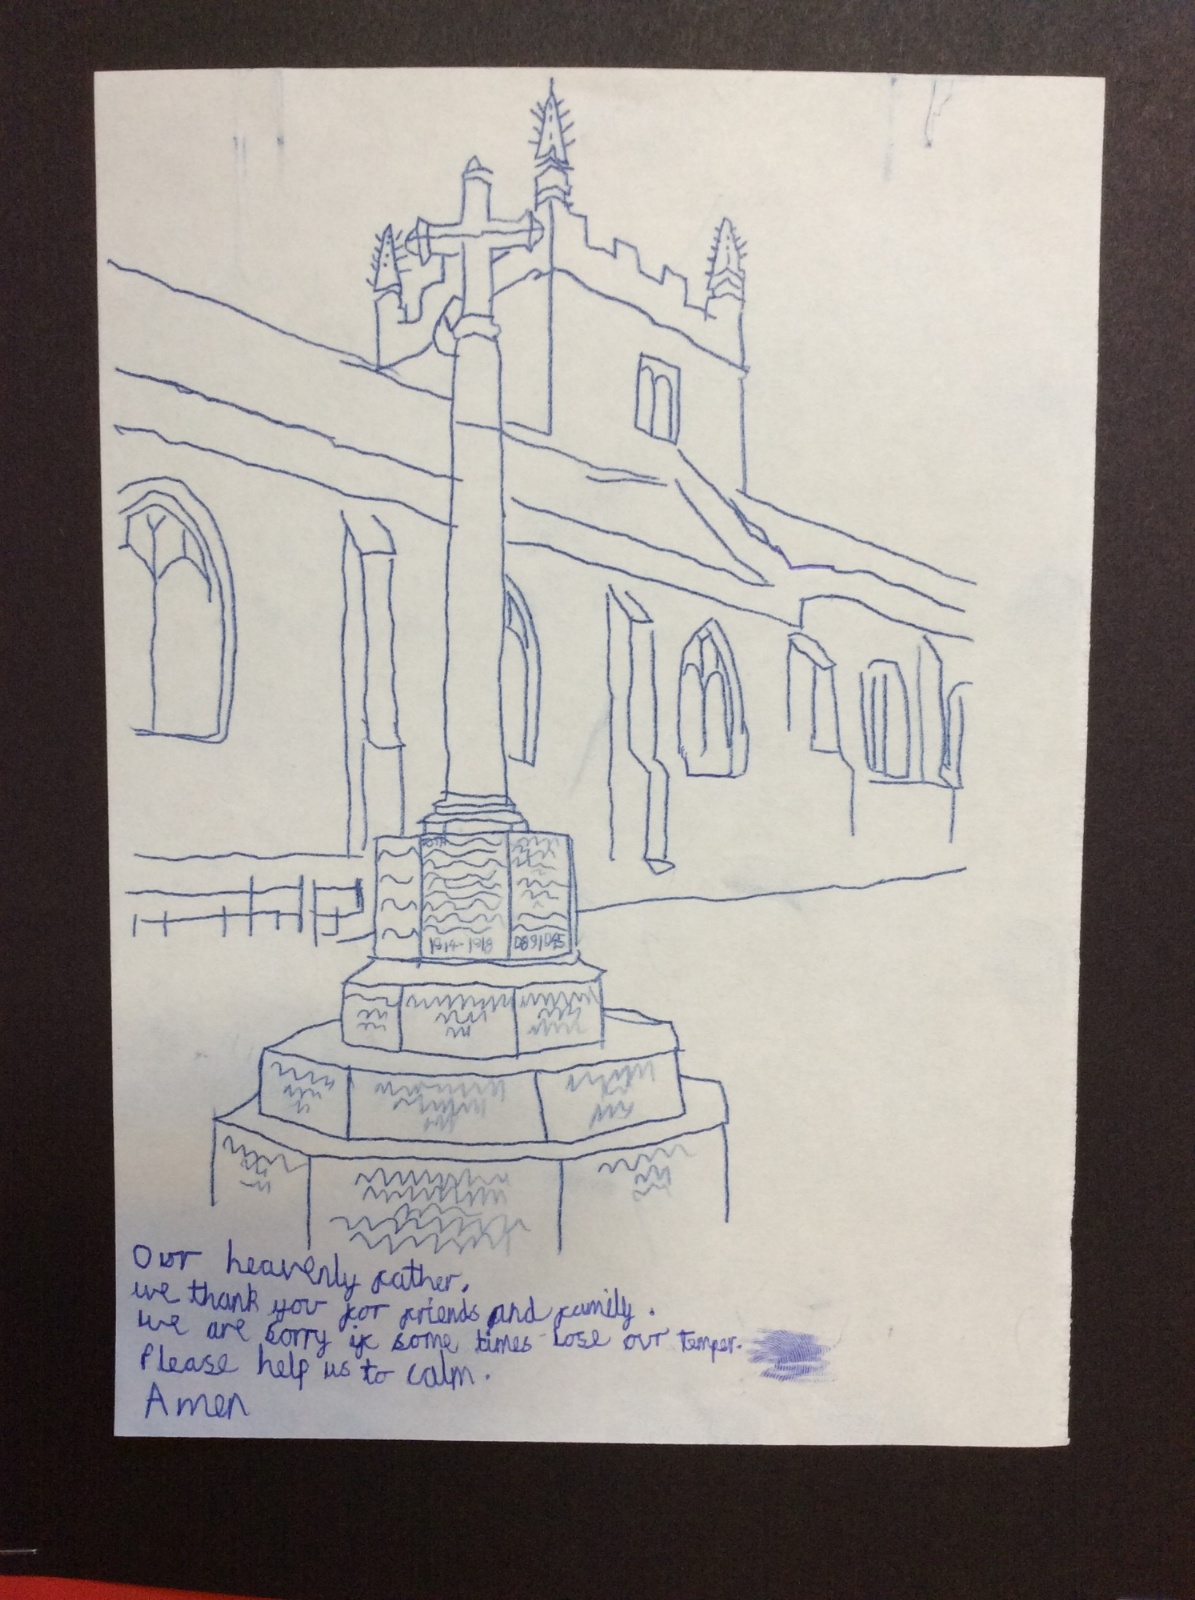 1914-1918
Our heavenly father,
we thank you for friends and family.
we are sorry if some times lose our temper.
Please help us to calm.
Amen